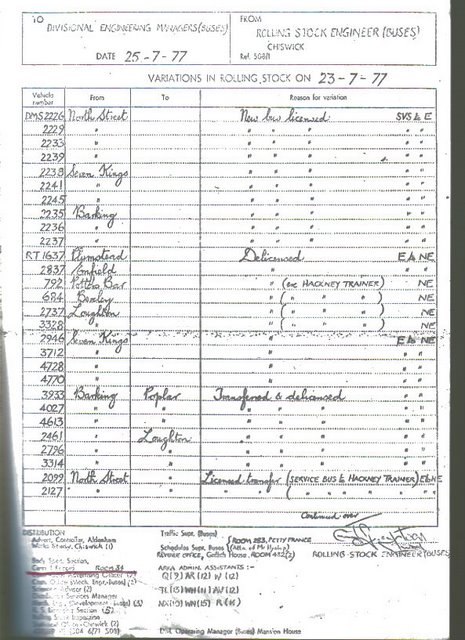 TO
DIVISIONAL ENGINEERING MANAGERS (BUSES)
DATE 25-7-77
FROM
ROLLING STOCK ENGINEER (BUSES)
CHISWICK
Ref.
VARIATIONS IN ROLLING STOCK ON 23-7-77
Vehicle number From To Reason for variation
DMS2226 North Street New bus licensed SVS & E
2229 " " " " " "
2233 " " " " " "
2239 " " " " " "
2238 Seven Kings " " " " "
2241 " " " " " "
2245 " " " " " "
2235 Barking " " " " "
2236 " " " " " "
2237 " " " " " "
RT 1637 Plumstead Delicensed E & NE
2837 Enfield " " "
792 Potters Bar " (ex HACKNEY TRAINER) NE
684 Bexley " ( " " " ) NE
2737 Loughton " ( " " " ) NE
3328 " " ( " " " ) NE
2946 Seven Kings " E & NE
3712 " " " "
4728 " " " "
4770 " " " "
3933 Barking Poplar Transferred & delicensed " "
4027 " " " " " " "
4613 " " " " " " "
2461 " Loughton " " " " "
2796 " " " " " " "
3314 " " " " " " "
2099 North Street Licensed transfer (SERVICE BUS to HACKNEY TRAINER) E & NE
2127 " " " ( " " " " " "
Continued over
ROLLING STOCK ENGINEER (BUSES)
DISTRIBUTION
Advert. Controller, Aldenham
Works Manager, Chiswick (1)
Traffic Supr. (Buses)
ROOM 283, PETTY FRANCE
Schedules Supr. Buses
AREA ADMIN ASSISTANTS:-
Operating Manager (Buses) Mansion House